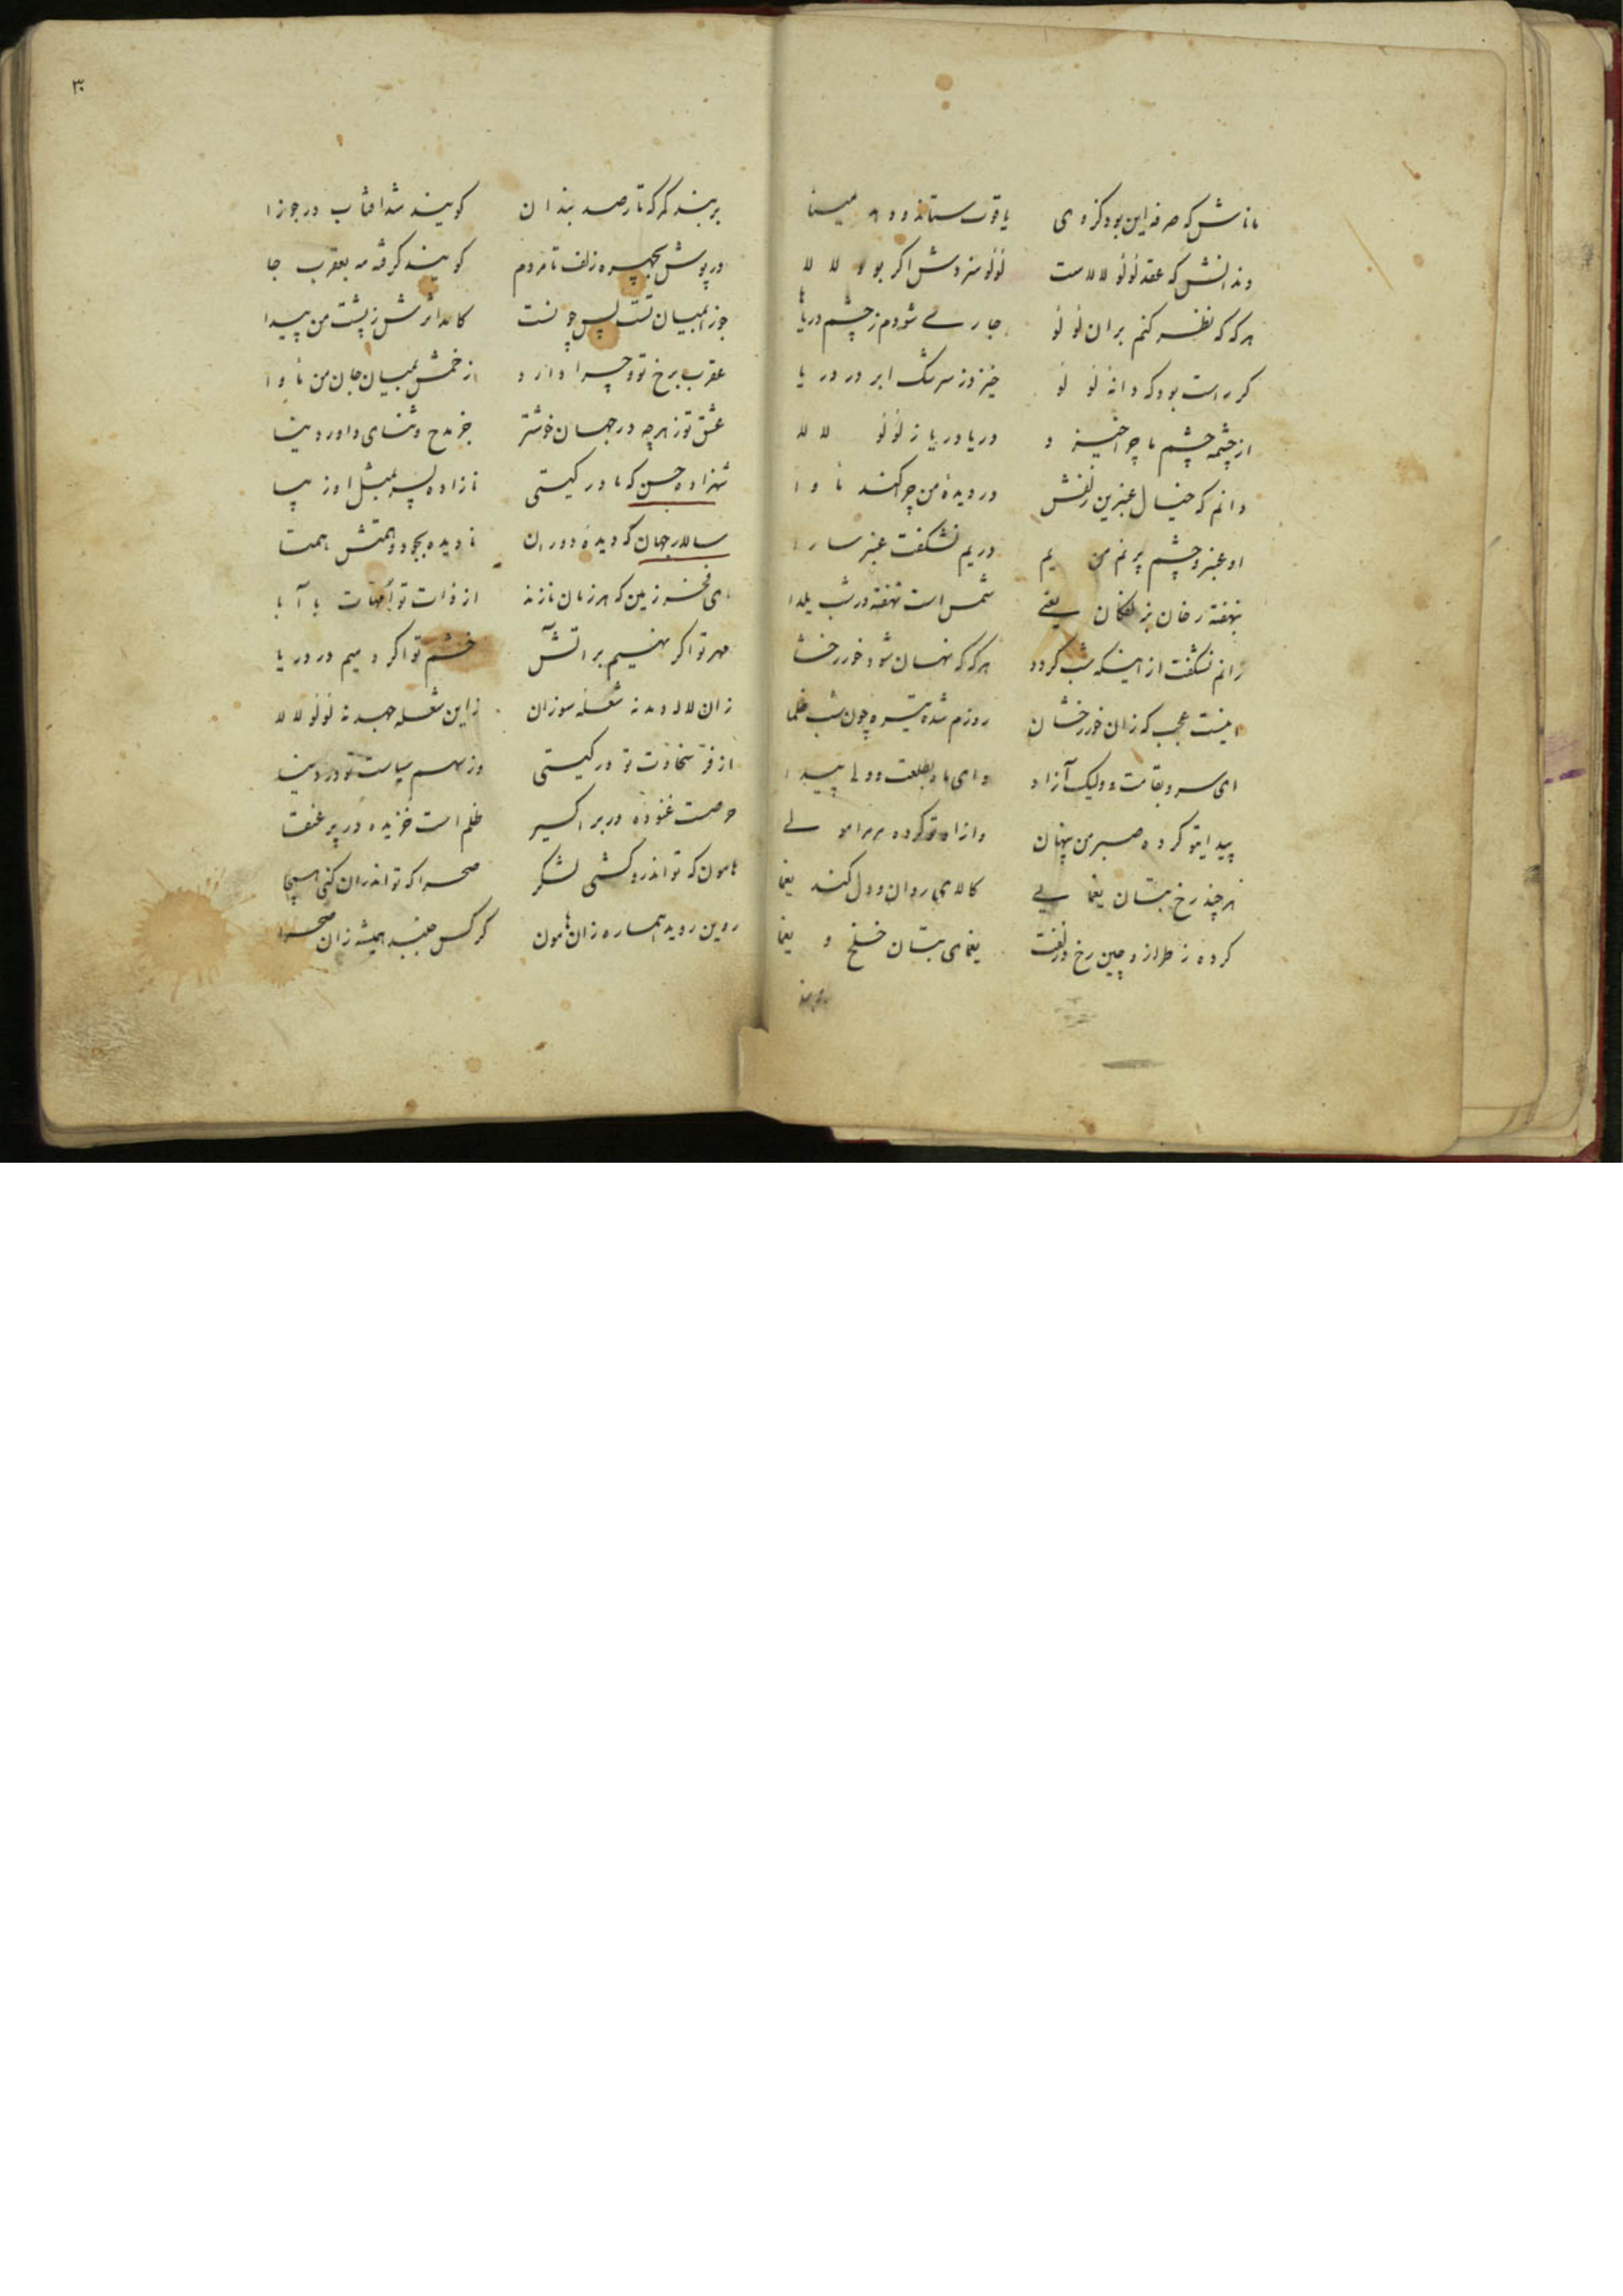 ماناش که صرفه این بود کز وی یاقوت ستاند و دهد مینا
دندانش که عقد لؤلؤ لالاست لؤلؤ نفروشش اگر بود لالا
هر گه که نظر کنم بران لؤلؤ جاری شودم ز چشم دریاها
گر راست بود که دانه لؤلؤ خیزد ز سرشک ابر در دریا
از چشمه چشم ما چرا خیزد دریا دریا ز لؤلؤ لالا
دانم که خیال عنبرین زلفش در دیده من چرا کند ماوا
او عنبر و چشم پر نم من یم در یم نشگفت عنبر سارا
بنهفته رخان بزلفکان یعنی شمس است نهفته در شب یلدا
زانم نشگفت از اینکه شب گردد هر گه که نهان شود خور رخشا
اینست عجب که زان خور رخشان روزم شده تیره چون شب ظلما
ای سرو بقامت و ولیک آزاد و ای ماه بطلعت و ولی پیدا
پیدا بتو کرده صبر من پنهان و آزاد تو کرده
هر چند رخ بتان یغمایی کالای روان و دل کند یغما
کرده ز طراز و چین رخ و زلفت یغمای بتان خلخ و یغما
بربند
۳۰
بربند کمر که تا رصد بندان گویند شد آفتاب در جوزا
در پوش بچهره زلف تا مردم گویند گرفته مه بعقرب جا
جوزا بمیان تست پس چونست کامد اثرش ز پشت من پیدا
عقرب برخ تو و چرا دارد از خمش بمیان جان من ماوا
عشق تو ز هر چه در جهان خوشتر جز مدح و ثنای داور دنیا
شهزاده حسن که مادر گیتی نازاده پسر بمثل او زیبا
سالار جهان که دیده دوران نادیده بجود و همتش همتا
ای فخر زمین که هر زمان نازند از ذات تو امهات با آبا
مهر تو اگر نهیم بر آتش خشم تو اگر دمیم در دریا
زان لاله دمد نه شعله سوزان زاین شعله جهد نه لؤلؤ لالا
از فر سخاوت تو در گیتی وز سهم سیاست تو در دنیا
حرصست غنوده در بر اکسیر ظلم است خزیده در پر عنقا
هامون که تو اندرو کشی لشکر صحرا که تو اندران کنی هیجا
روین روید هماره زان هامون کرکس جنبد همیشه زان صحرا